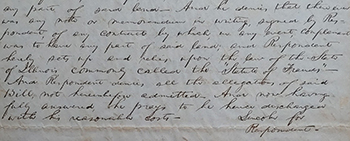 any part of said land - And he denies that there
was any note or memorandum in writing, signed by Res-
pondent of any contract by which complainant
was to have any part of said land; and Respondent
hereby sets up and relies upon the law of the State
of Illinois Commonly called the "State of Frauds" -
And Respondent denies all the allegations of said
Bill, not hereinbefore admitted. And now having
fully answered he prays to be hence discharged
with his reasonable costs -
Lincoln for
Respondent -